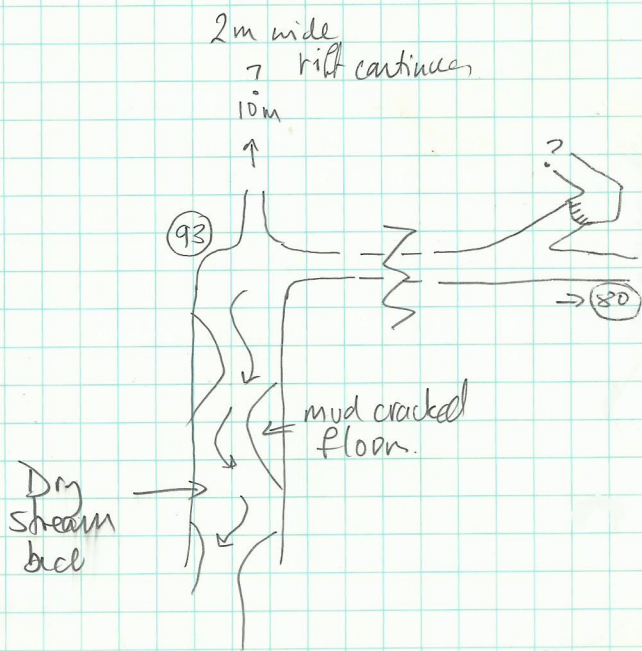 2m wide
rift continues
?
10m
?
93
80
mud cracked
floor.
Dry
stream
bed